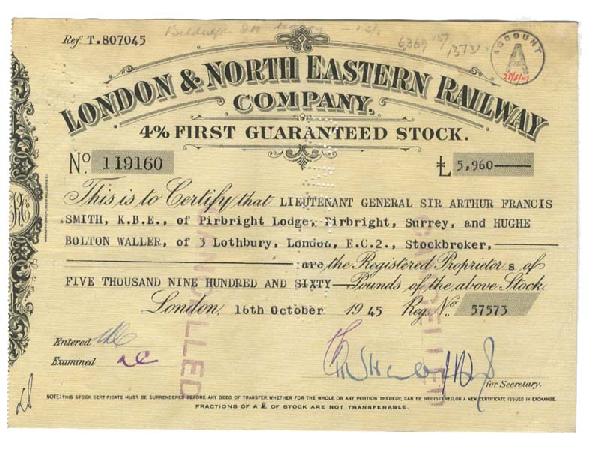 Ref T.807045
ACCOUNT
A
LONDON & NORTH EASTERN RAILWAY
COMPANY.
4% FIRST GUARANTEED STOCK.
No. 119160
£ 5,960
This is to Certify that LIEUTENANT GENERAL SIR ARTHUR FRANCIS
SMITH, K.B.E., of Pirbright Lodge, Pirbright, Surrey, and HUGHE
BOLTON WALLER, of 3 Lothbury, London, E.C.2, Stockbroker,
are the Registered Proprietor s of
FIVE THOUSAND NINE HUNDRED AND SIXTY Pounds of the above Stock
London, 16th October 1945 Reg. No. 57573
CANCELLED
CANCELLED
Entered
Examined
for Secretary.
NOTE: THIS STOCK CERTIFICATE MUST BE SURRENDERED BEFORE ANY DEED OF TRANSFER, WHETHER FOR THE WHOLE OR ANY PORTION THEREOF, CAN BE REGISTERED OR A NEW CERTIFICATE ISSUED IN EXCHANGE.
FRACTIONS OF A £ OF STOCK ARE NOT TRANSFERABLE.